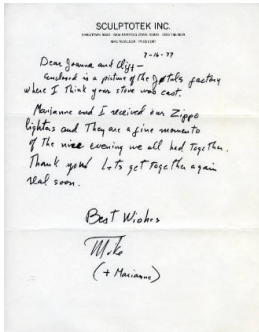 SCULPTOTEK INC.
7-16-77
Dear Joanna and Cliff—
Enclosed is a picture of the Jøtuls factory
where I think your stove was cast.
Marianne and I received our Zippo
lighters and They are a fine momento
of the nice evening we all had together.
Thank you! Lets get together again
real soon.
Best Wishes
Mike
(+ Marianne)